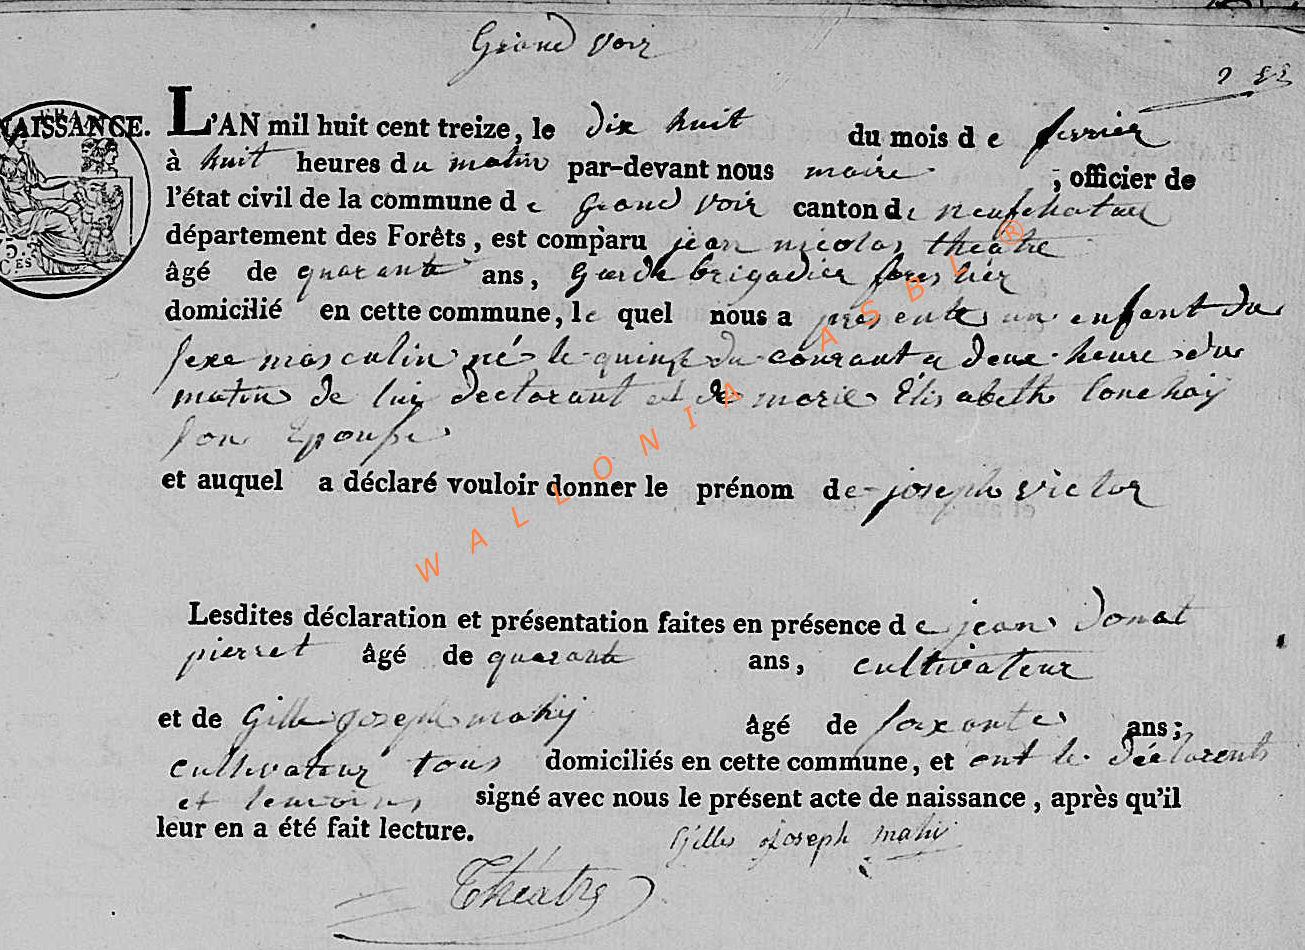 Grand voir
NAISSANCE. L'AN mil huit cent treize, le dix huit du mois de fevrier
à huit heures du matin par-devant nous maire, officier de
l'état civil de la commune de grand voir canton de neufchatau
département des Forêts, est comparu jean nicolas théatre
âgé de quarante ans, Garde brigadier forestier
domicilié en cette commune, le quel nous a presenté un enfant du
sexe masculin né le quinze du courant a deux heure du
matin de lui declarant et de marie Elisabeth lonchay
son Epouse
et auquel a déclaré vouloir donner le prénom de joseph victor
Lesdites déclaration et présentation faites en présence de jean donat
pierret âgé de quarante ans, cultivateur
et de Gille joseph mahy âgé de soixante ans;
cultivateur tous domiciliés en cette commune, et ont le déclarents
et temoins signé avec nous le présent acte de naissance, après qu'il
leur en a été fait lecture. Gilles joseph mahy
Théatre
WALLONIA ASBL ®